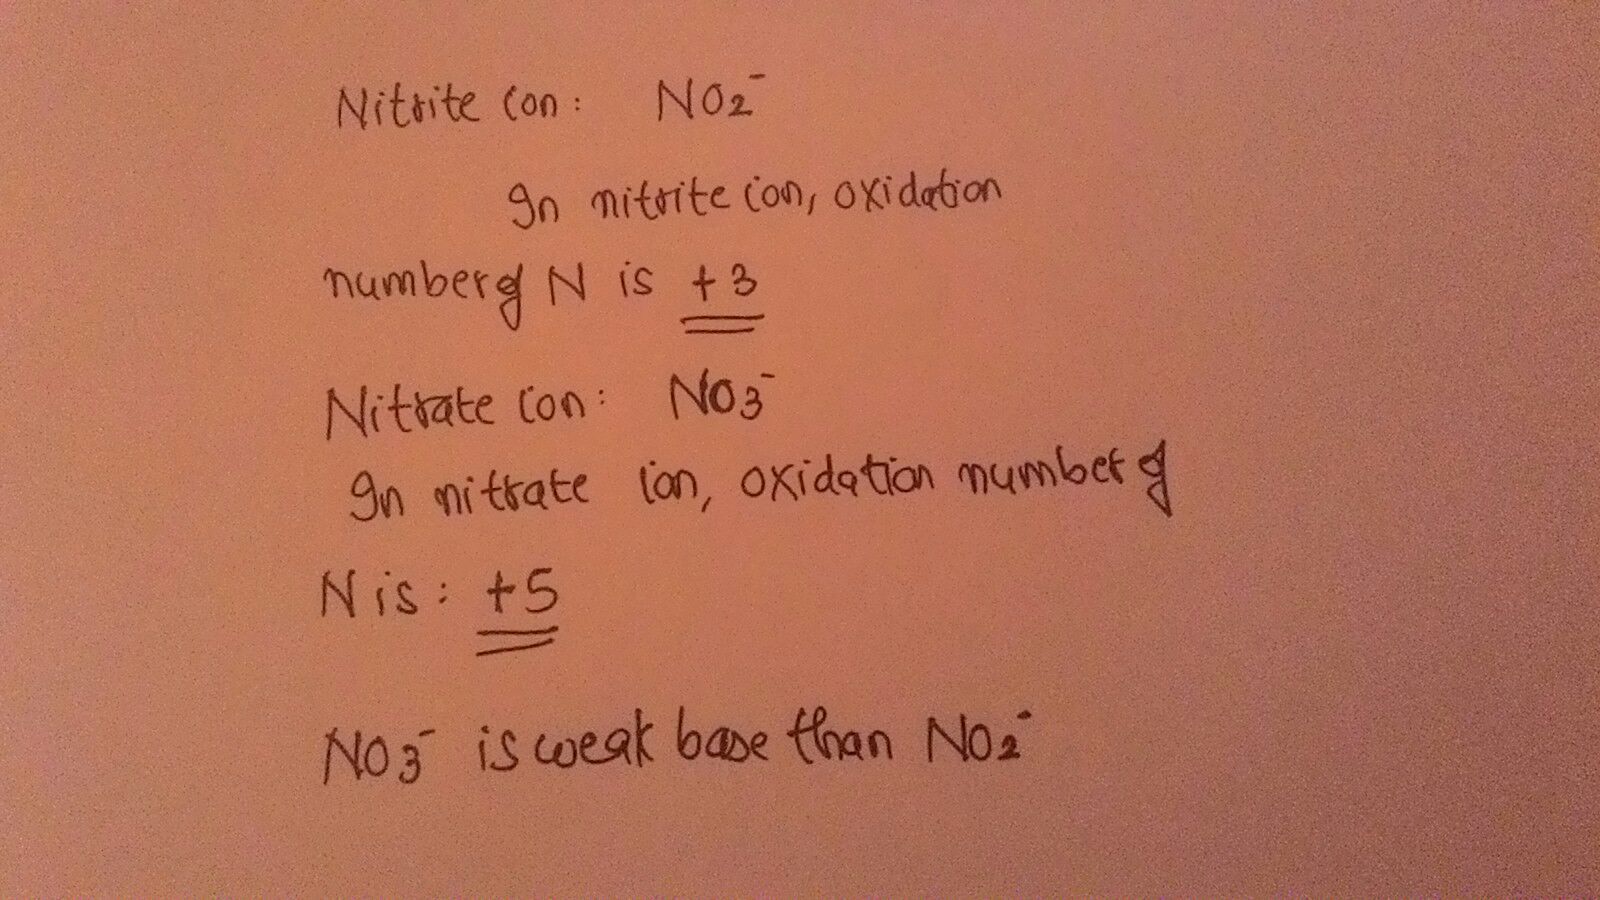 Nitrite ion: NO2⁻
In nitrite ion, oxidation
number of N is +3
Nitrate ion: NO3⁻
In nitrate ion, oxidation number of
N is: +5
NO3⁻ is weak base than NO2⁻